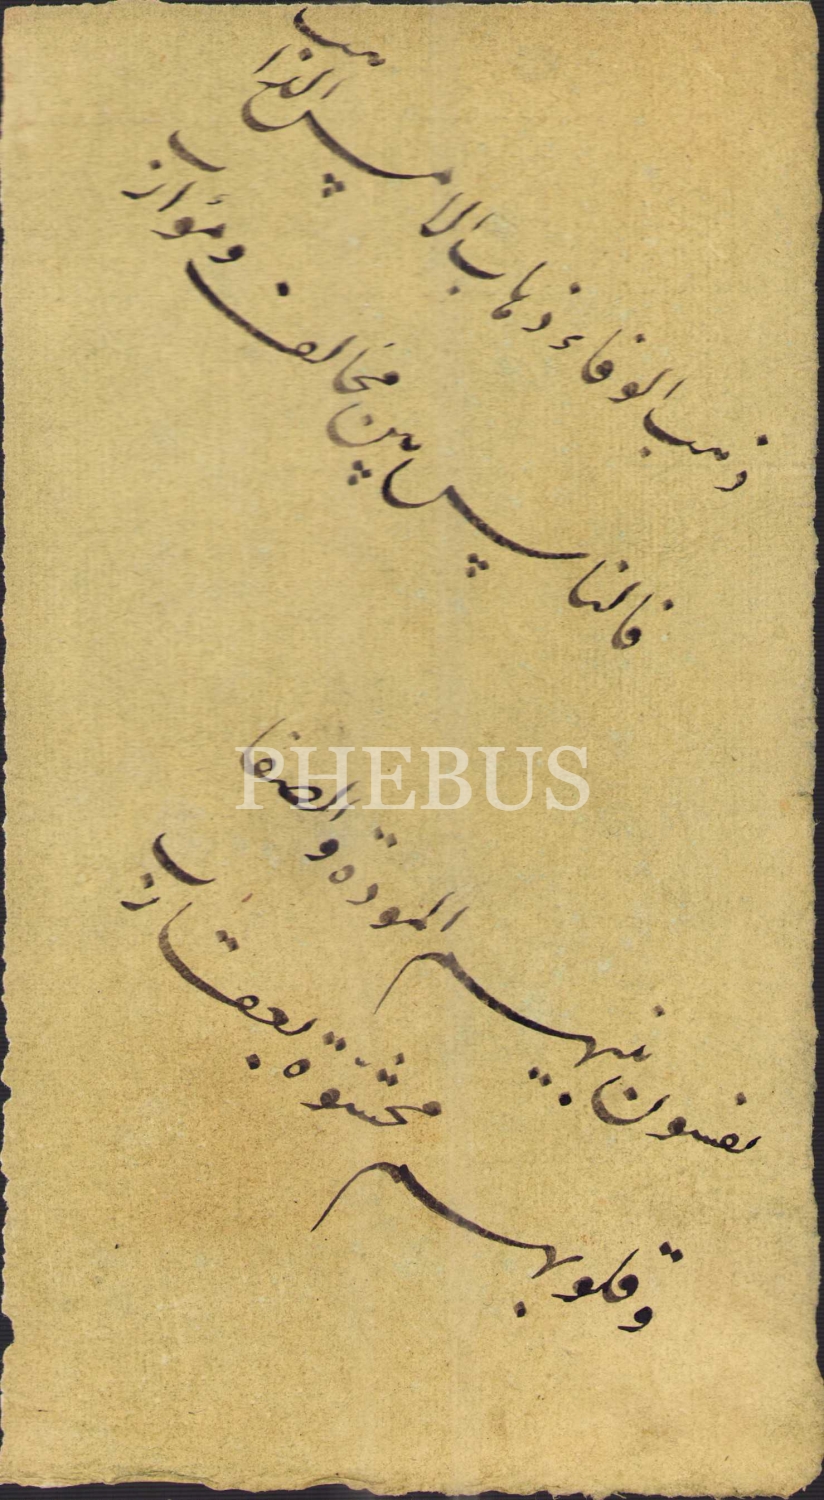 ذهب الوفاء ذهاب الامس الذاهب
فالناس بين مخالف ومؤارب
يفشون بينهم المودة والصفا
وقلوبهم محشوّة بعقارب
PHEBUS